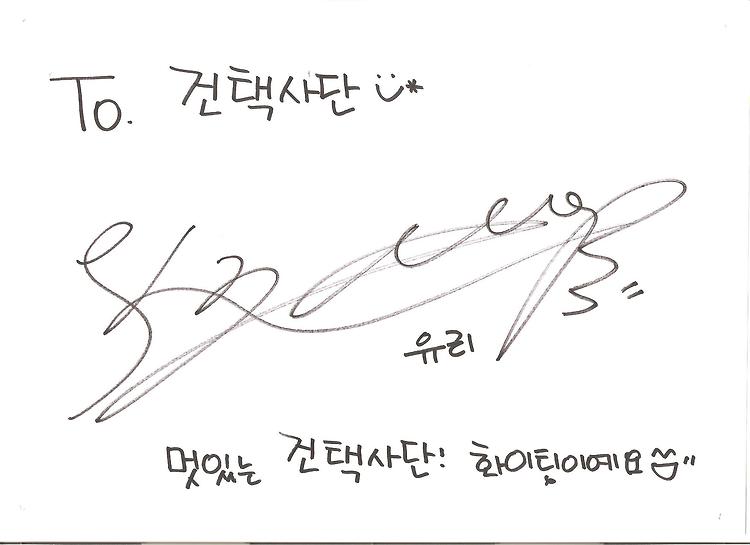 To. 건택사단 ü*
유리
멋있는 건택사단! 화이팅이예요